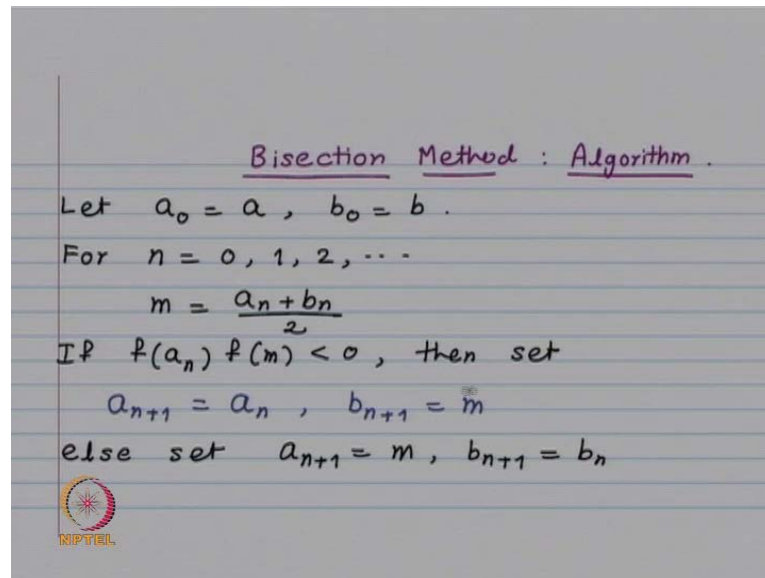 Bisection Method : Algorithm .
Let a₀ = a , b₀ = b .
For n = 0 , 1 , 2 , ...
m = (aₙ + bₙ) / 2
If f(aₙ) f(m) < 0 , then set
aₙ₊₁ = aₙ , bₙ₊₁ = m
else set aₙ₊₁ = m , bₙ₊₁ = bₙ
NPTEL